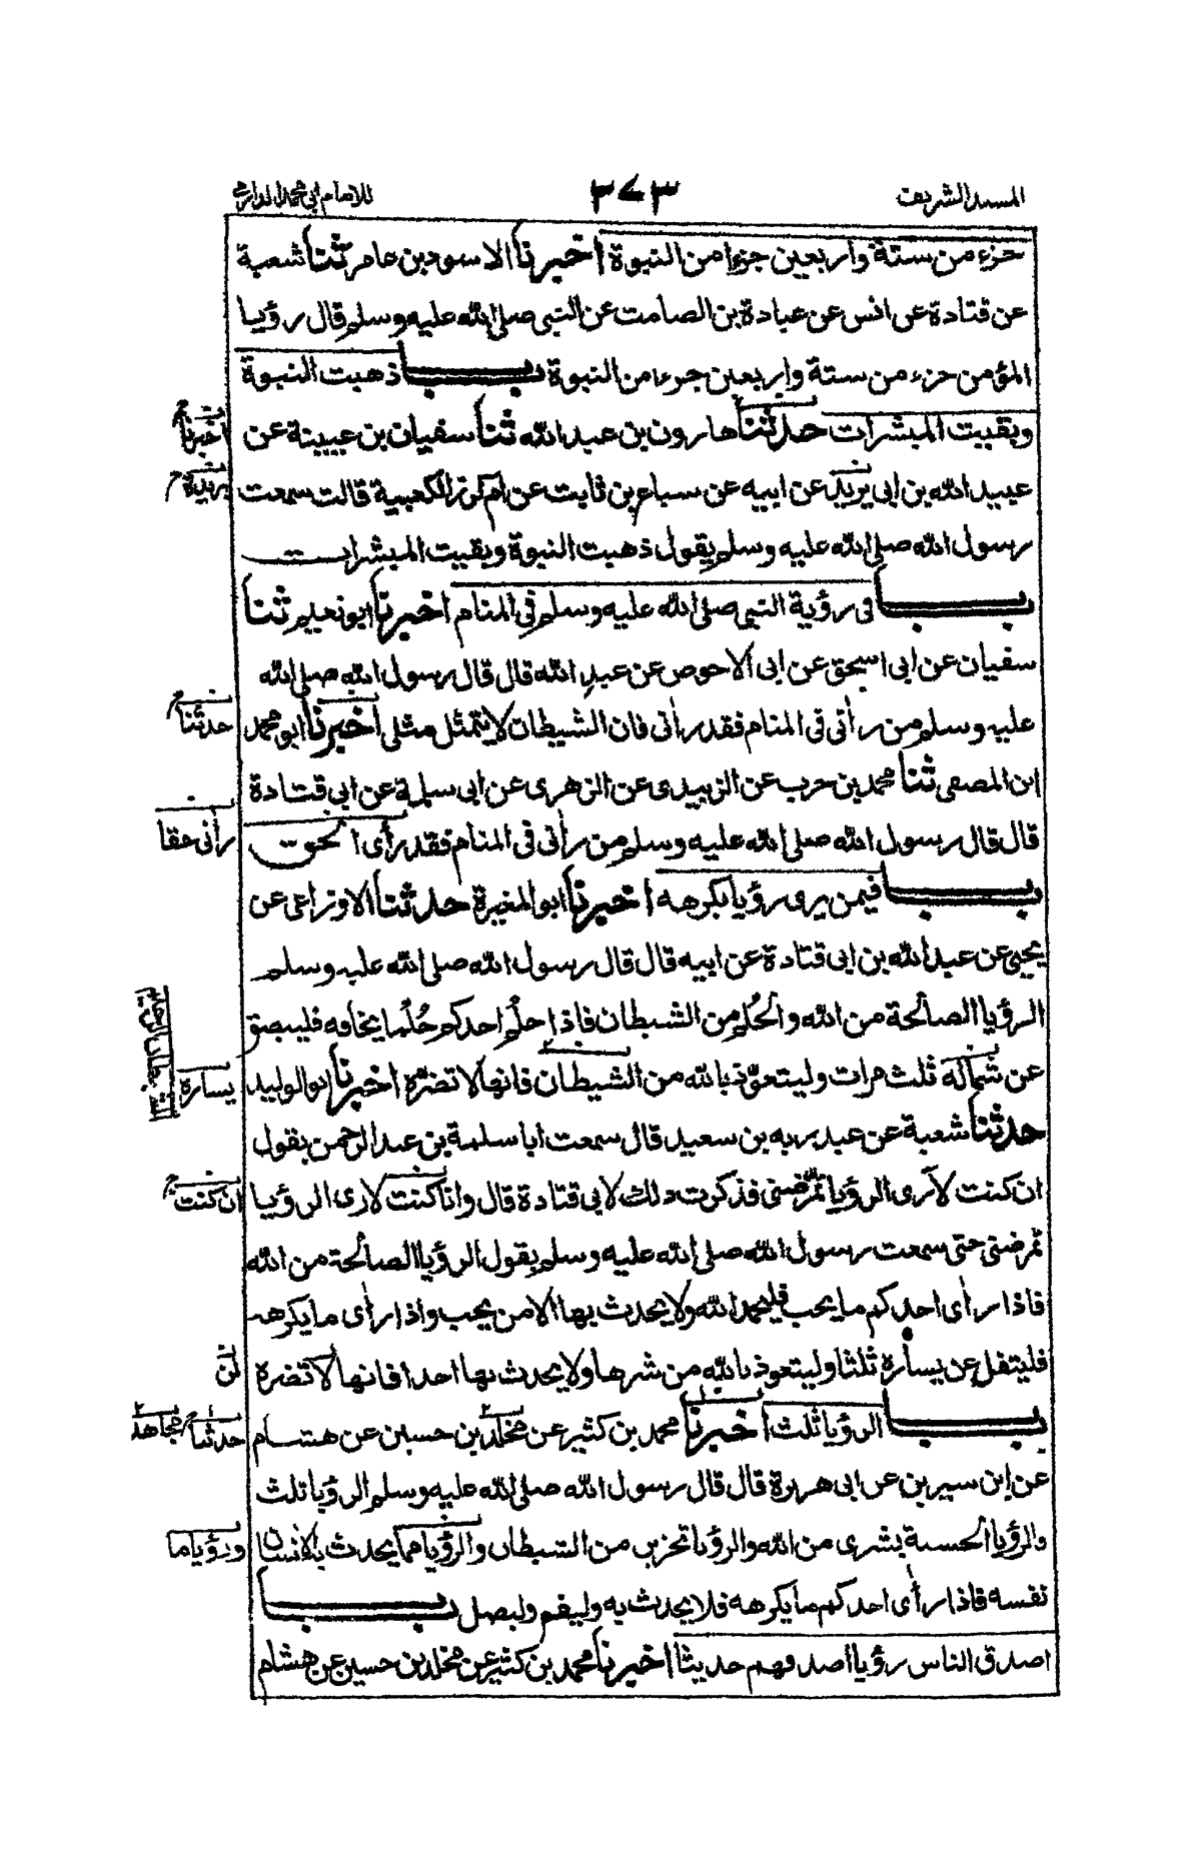 المسند الشريف
٣٧٣
للامام ابي محمد الدارمي
جزء من ستة واربعين جزءا من النبوة اخبرنا الاسود بن عامر ثنا شعبة
عن قتادة عن انس عن عبادة بن الصامت عن النبي صلى الله عليه وسلم قال رؤيا
المؤمن جزء من ستة واربعين جزءا من النبوة باب ذهبت النبوة
وبقيت المبشرات حدثنا هارون بن عبد الله ثنا سفيان بن عيينة عن
اخبرنا
عبيد الله بن ابى يزيد عن ابيه عن سباع بن ثابت عن ام كرز الكعبية قالت سمعت
رسول الله صلى الله عليه وسلم يقول ذهبت النبوة وبقيت المبشرات
باب فى رؤية النبي صلى الله عليه وسلم فى المنام اخبرنا ابو نعيم ثنا
سفيان عن ابى اسحق عن ابى الاحوص عن عبد الله قال قال رسول الله صلى الله
عليه وسلم من رأنى فى المنام فقد رأنى فان الشيطان لا يتمثل مثلى اخبرنا ابو محمد
حدثنا
ابن المصفى ثنا محمد بن حرب عن الزبيدى عن الزهرى عن ابى سلمة عن ابى قتادة
قال قال رسول الله صلى الله عليه وسلم من رأنى فى المنام فقد رأى الحق
رأنى حقا
باب فيمن يرى رؤيا يكرهه اخبرنا ابو المغيرة حدثنا الاوزاعى عن
يحيى عن عبد الله بن ابى قتادة عن ابيه قال قال رسول الله صلى الله عليه وسلم
الرؤيا الصالحة من الله والحُلم من الشيطان فاذا حلم احدكم حُلُما يخافه فليبصق
عن شماله ثلث مرات وليتعوّذ بالله من الشيطان فانها لا تضرّه اخبرنا ابو الوليد
يساره
حدثنا شعبة عن عبد ربه بن سعيد قال سمعت ابا سلمة بن عبد الرحمن يقول
ان كنت لأرى الرؤيا تمرضنى فذكرت ذلك لابى قتادة قال وانا كنت لارى الرؤيا
ان كنت
تمرضنى حتى سمعت رسول الله صلى الله عليه وسلم يقول الرؤيا الصالحة من الله
فاذا رأى احدكم ما يحب فليحمد الله ولا يحدث بها الا من يحب واذا رأى ما يكرهه
فليتفل عن يساره ثلثا وليتعوذ بالله من شرها ولا يحدث بها احدا فانها لا تضره
لن
باب الرؤيا ثلث اخبرنا محمد بن كثير عن مخلد بن حسين عن هشام
حدثنا
مجاهد
عن ابن سيرين عن ابى هريرة قال قال رسول الله صلى الله عليه وسلم الرؤيا ثلث
والرؤيا الحسنة بشرى من الله والرؤيا تحزين من الشيطان والرؤيا مما يحدث به الانسان
ورؤيا ما
نفسه فاذا رأى احدكم ما يكرهه فلا يحدث به وليقم وليصل باب
اصدق الناس رؤيا اصدقهم حديثا اخبرنا محمد بن كثير عن مخلد بن حسين عن هشام